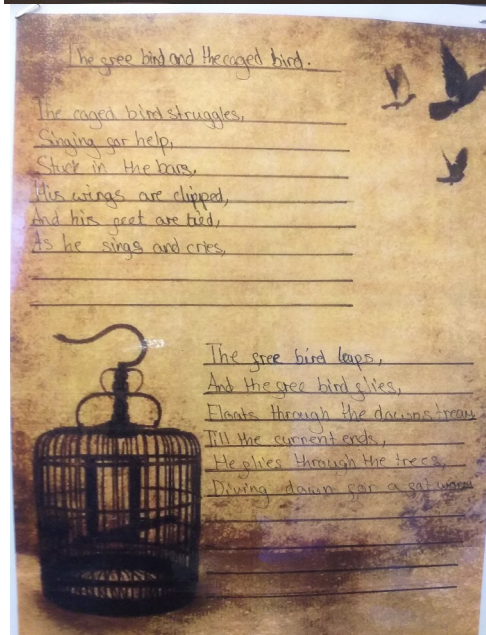 The free bird and the caged bird.
The caged bird struggles,
Singing for help,
Stuck in the bars,
His wings are clipped,
And his feet are tied,
As he sings and cries,
The free bird leaps,
And the free bird flies,
Floats through the downstream
Till the current ends,
He flies through the trees,
Diving down for a fat worm